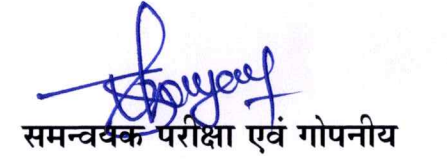 समन्वयक परीक्षा एवं गोपनीय